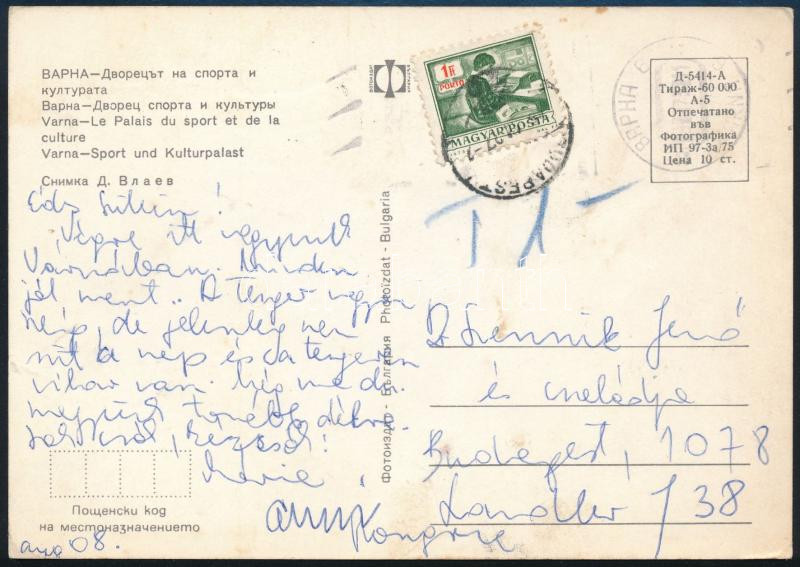 ВАРНА—Дворецът на спорта и
културата
Варна—Дворец спорта и культуры
Varna—Le Palais du sport et de la
culture
Varna—Sport und Kulturpalast
Снимка Д. Влаев
1 Ft
PORTO
MAGYAR POSTA
BUDAPEST
ВАРНА
Д-5414-А
Тираж-60 000
А-5
Отпечатано
във
Фотографика
ИП 97-3а/75
Цена 10 ст.
T 1-
Végre itt vagyunk
Várnában. Minden
jól ment.. A tenger nagyon
szép, de jelenleg nem
süt a nap és a tengeren
vihar van. Még ma
megyünk tovább
Фотоиздат - България Photoizdat - Bulgaria
Dr. Jenő
és családja
Budapest, 1078
Landler / 38
Hongrie
Пощенски код
на местоназначението
aug 08.